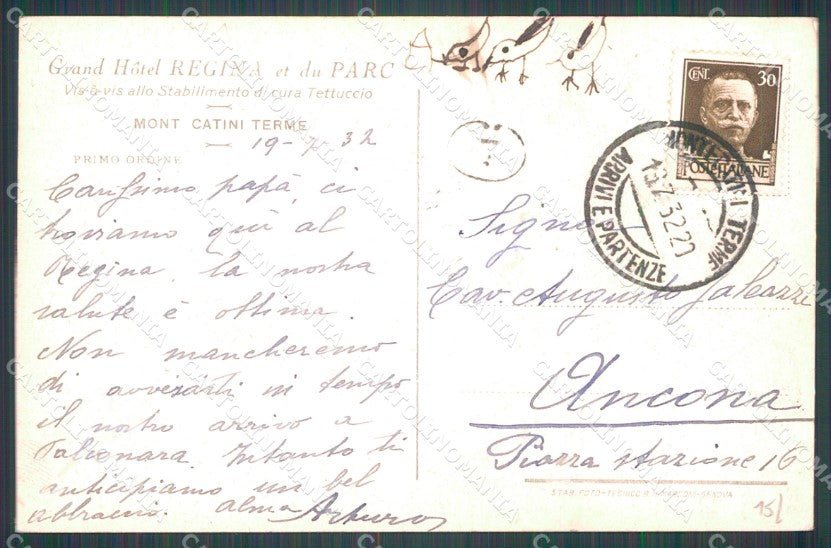 Grand Hôtel REGINA et du PARC
Vis-à-vis allo Stabilimento di cura Tettuccio
MONT CATINI TERME
19-7 32
PRIMO ORDINE
Carissimo papà, ci
troviamo qui al
Regina. La nostra
salute è ottima.
Non mancheremo
di avvisarti in tempo
il nostro arrivo a
Falconara. Intanto ti
anticipiamo un bel
abbraccio. Alma Arturo
CENT. 30
POSTE ITALIANE
MONTECATINI TERME
19.7.32 20
ARRIVI E PARTENZE
Signor
Cav. Augusto Galeazzi
Ancona
Piazza stazione 16
STAB. FOTO-TECNICO
GENOVA
15/
CARTOLINOMANIA